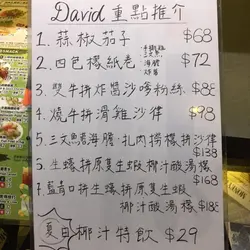 David 重點推介
1. 蒜椒茄子 $68
2. 四包檬紙卷 $72
3. 双牛拼炸醬沙嗲粉絲 $88
4. 燒牛拼滑雞沙律 $98
5. 三文魚海膽、扎肉撈檬拼沙律 $138
6. 生蠔拼原隻生蝦椰汁酸湯檬 $168
7. 藍青口拼生蠔拼原隻生蝦
椰汁酸湯檬 $188
夏日椰汁特飲 $29